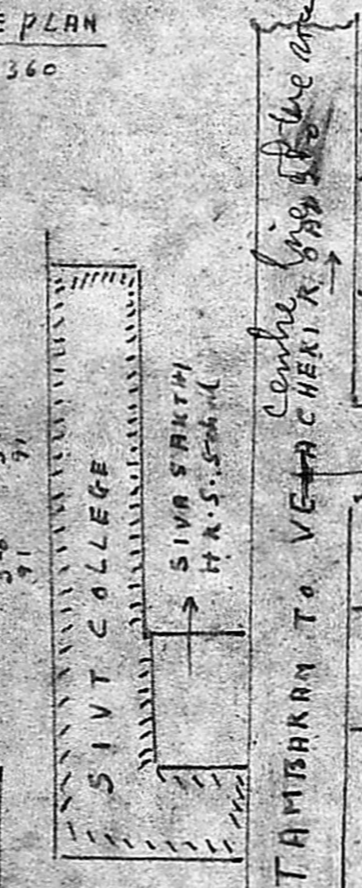 E PLAN
360
SIVT COLLEGE
SIVA SAKTHI
H.R.S. School
TAMBARAM TO VELACHERI ROAD
Centre line of the
91
91